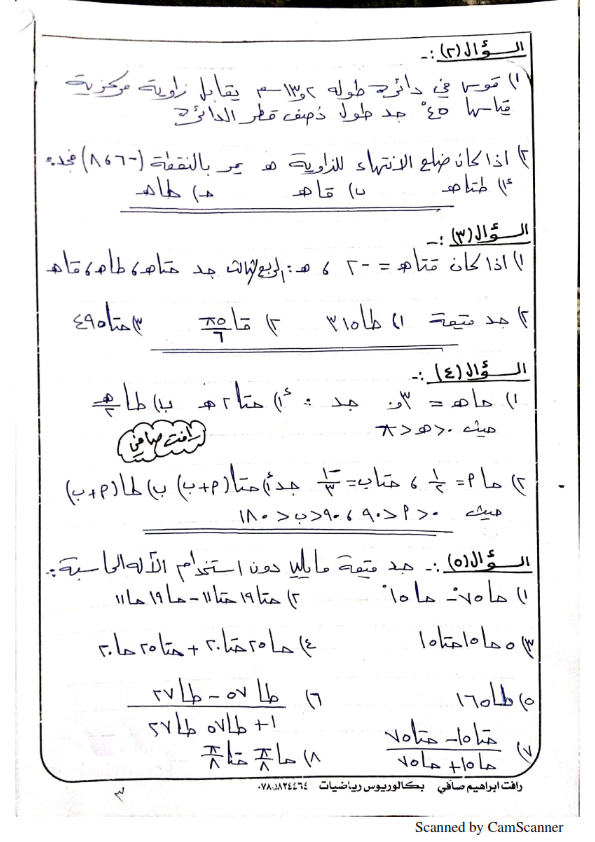 السؤال (٢) :-
١) قوس في دائرة طوله ١٣٫٢ سم يقابل زاوية مركزية
قياسها ٤٥° جد طول نصف قطر الدائرة
٢) اذا كان ضلع الانتهاء للزاوية هـ يمر بالنقطة (-٦، ٨) فجد:
أ) ظتاهـ ب) قاهـ جـ) طاهـ
السؤال (٣) :-
١) اذا كان قتاهـ = -٢ ، هـ: الربع الثالث جد حتاهـ، طاهـ، قاهـ
٢) جد قيمة ١) طا٣١٥ ٢) قا ٥π/٦ ٣) حتا٤٩٥
السؤال (٤) :-
١) حاهـ = ٣و٠ جد : أ) حتا٢هـ ب) طا هـ/٢
حيث ٠ < هـ < π
رافت صافي
٢) حا٩ = ١/٢ ، حتاب = -١/٣ جد أ) حتا(٩+ب) ب) طا(٩+ب)
حيث ٠ < ٩ < ٩٠ ، ٩٠ < ب < ١٨٠
السؤال (٥) :- جد قيمة مايلي دون استخدام الآلة الحاسبة :-
١) حا٧٥° - حا١٥° ٢) حتا١٩ حتا١١ - حا١٩ حا١١
٣) ٥ حا١٥ حتا١٥ ٤) حا٢٥ حتا٢٠ + حتا٢٥ حا٢٠
٥) طا١٦٥ ٦) طا٥٧ - طا٢٧ / ١ + طا٥٧ طا٢٧
٧) حتا١٥ - حتا٧٥ / حا١٥ + حا٧٥ ٨) حا π/٨ حتا π/٨
رافت ابراهيم صافي بكالوريوس رياضيات ٠٧٨٠٨٢٤٤٦٤
٣
Scanned by CamScanner